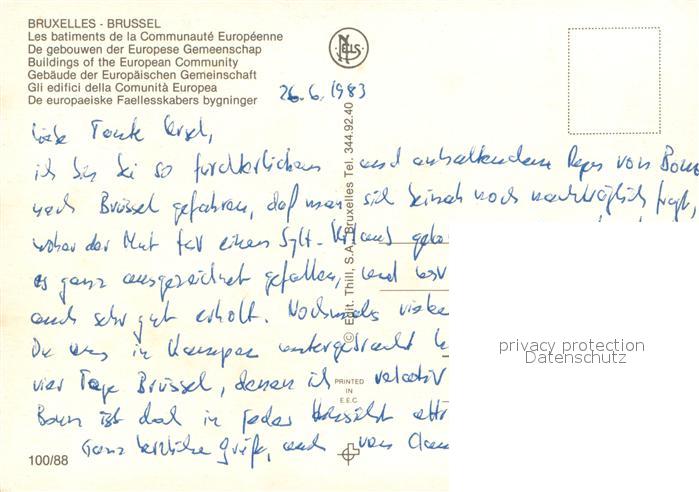 BRUXELLES - BRUSSEL
Les batiments de la Communauté Européenne
De gebouwen der Europese Gemeenschap
Buildings of the European Community
Gebäude der Europäischen Gemeinschaft
Gli edifici della Comunità Europea
De europaeiske Faellesskabers bygninger
NELS
26.6.1983
Liebe Tante Ursel,
ich bin bei so fürchterlichem und anhaltendem Regen von Bonn
nach Brüssel gefahren, daß man sich beinah noch nachträglich fragt,
woher der Mut für einen Sylt-Urlaub
es ganz ausgezeichnet gefallen, und
auch sehr gut erholt. Nochmals vielen
Du uns in Kampen untergebracht
vier Tage Brüssel, denen ich relativ
Bonn ist doch in jeder Hinsicht
Ganz herzliche Grüße, auch von
© Edit. Thill, S.A., Bruxelles Tel. 344.92.40
PRINTED
IN
E.E.C.
100/88
privacy protection
Datenschutz